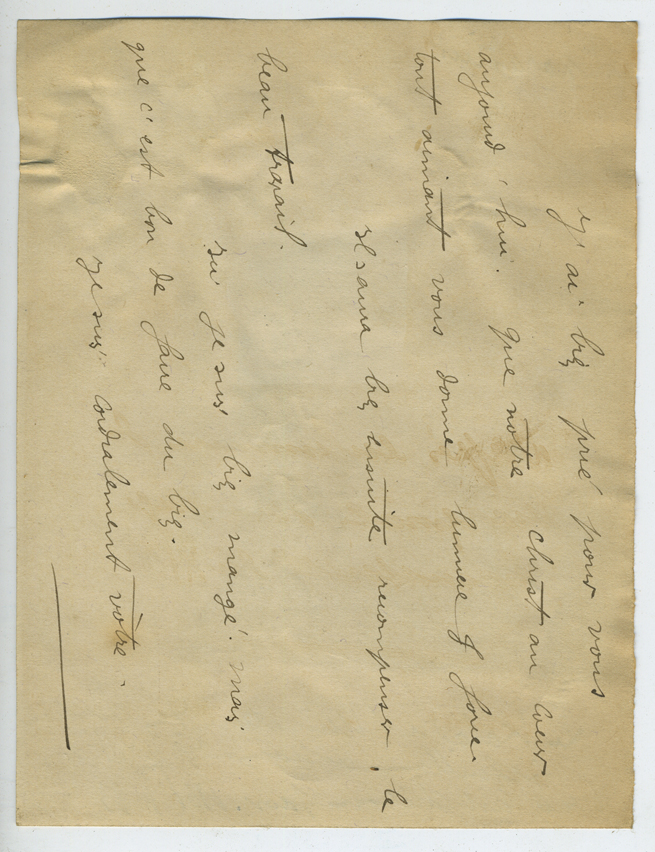 J'ai biẽ prié pour vous
aujourd'hui. Que notre Christ au Coeur
tout aimant vous donne lumière & force.
Il saura biẽ ensuite récompenser le
beau travail.
Ici je suis biẽ mangé. Mais
que c'est bon de faire du biẽ.
Je suis cordialement vôtre.